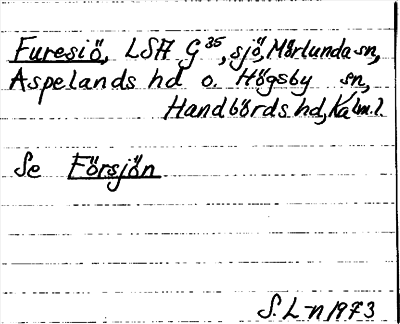 Furesiö, LSA G 35, sjö, Mörlunda sn,
Aspelands hd o. Högsby sn,
Handbörds hd, Kalm. l.
Se Försjön
S. L-n 1973